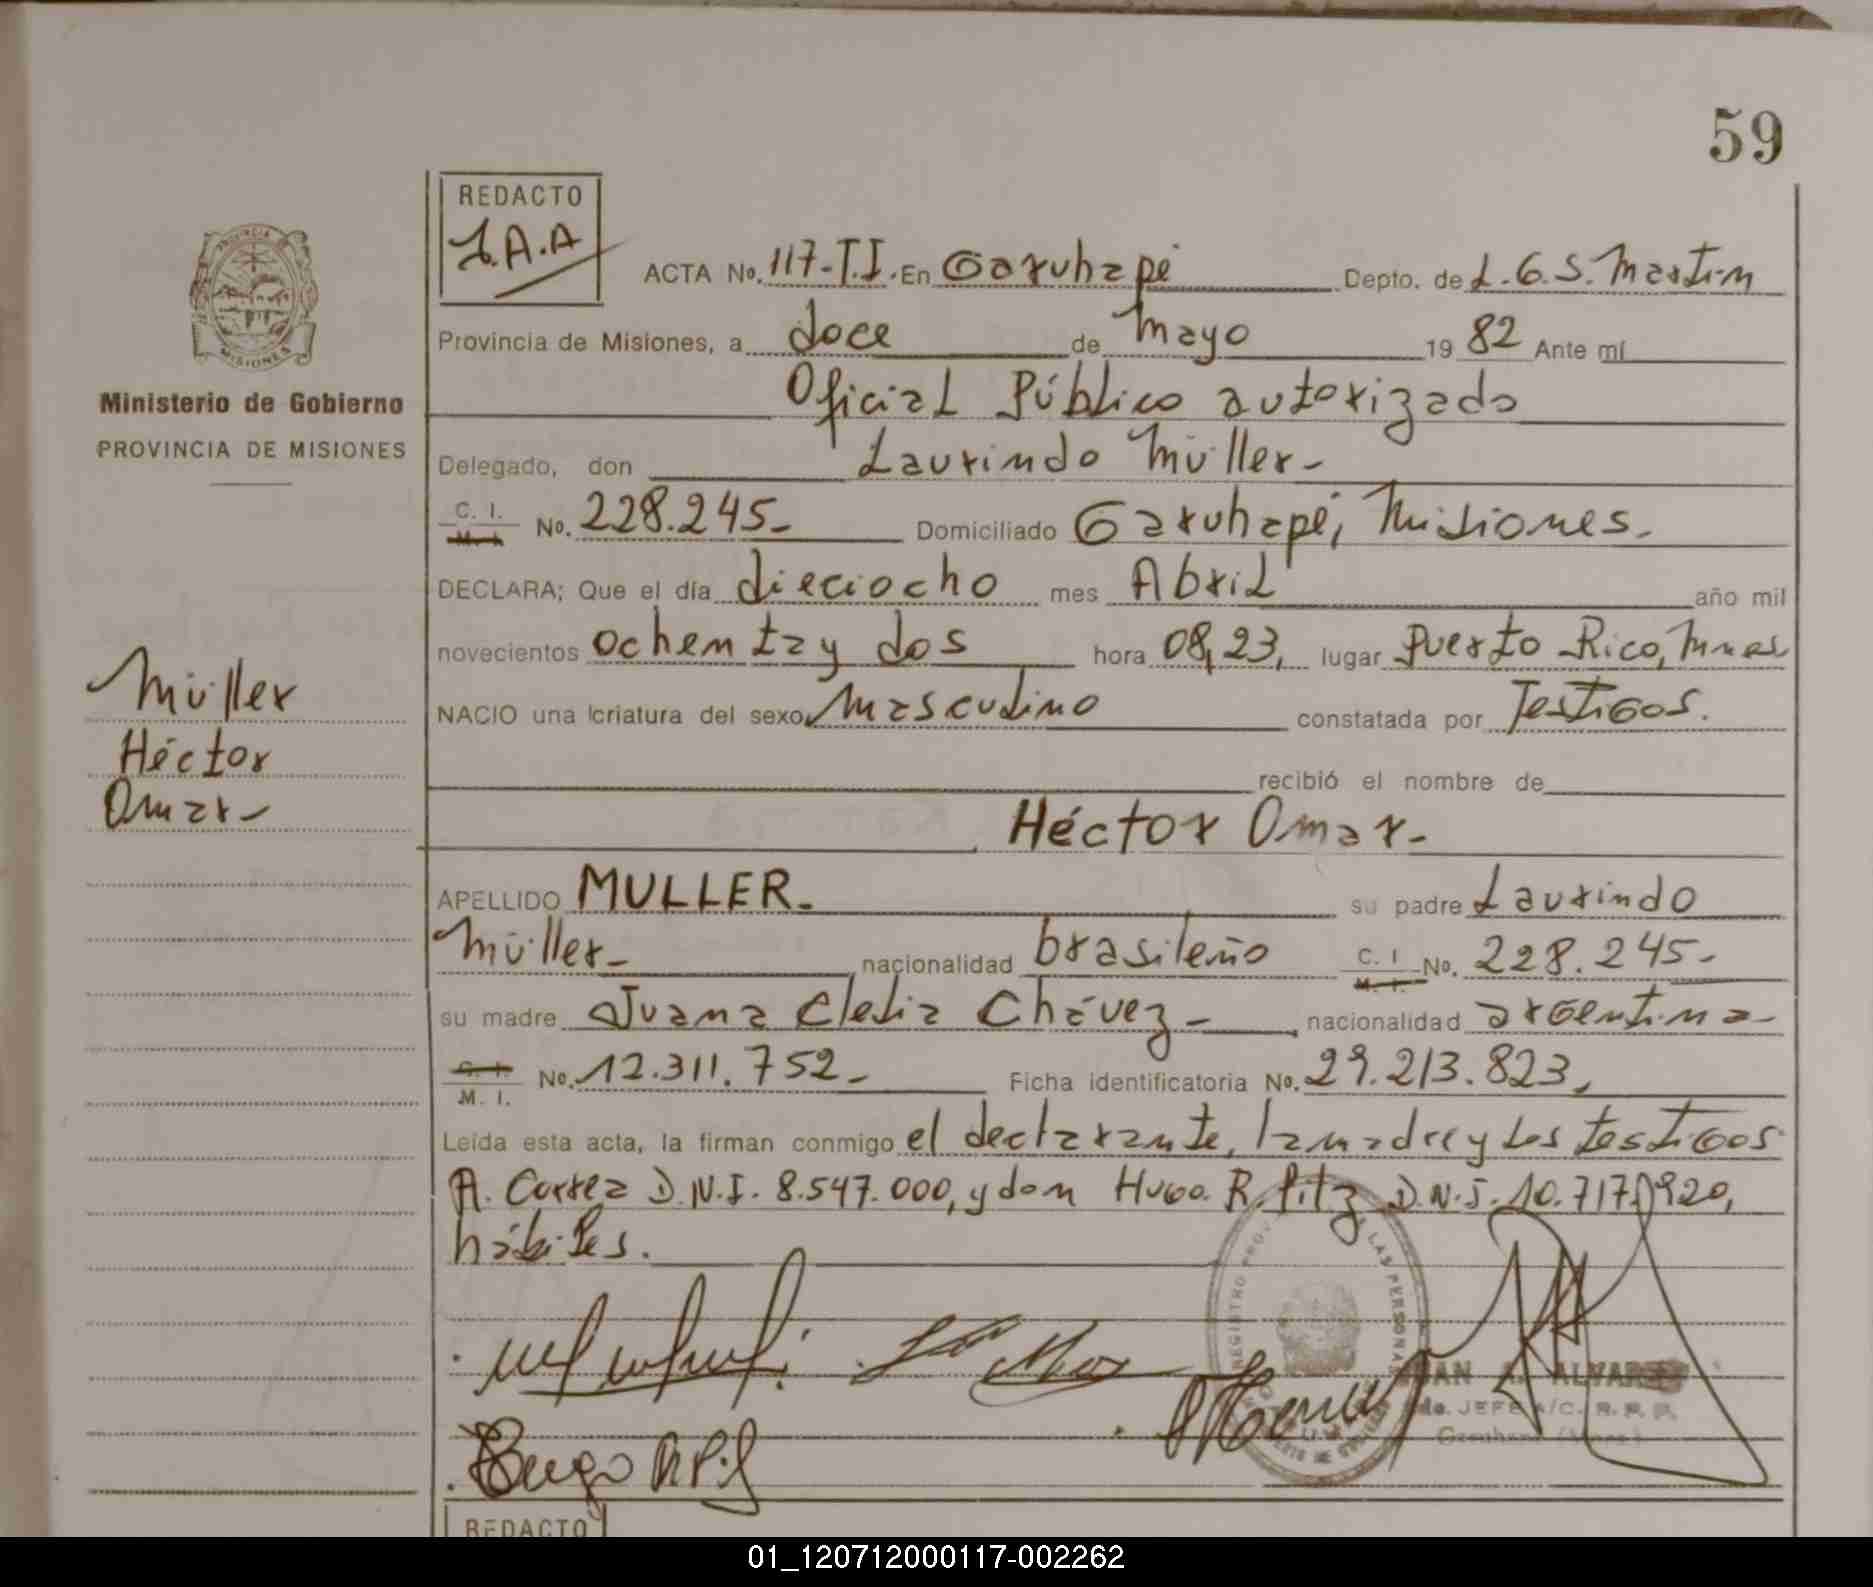 59
REDACTO
J.A.A
ACTA No. 117-T.I. En Garuhapé Depto. de L.G.S. Martin
Provincia de Misiones, a doce de mayo 19 82 Ante mí
Oficial Público autorizado
Delegado, don Laurindo Müller-
C. I. M. I. No. 228.245- Domiciliado Garuhapé, Misiones.
DECLARA; Que el día dieciocho mes Abril año mil
novecientos ochenta y dos hora 08,23, lugar Puerto Rico, Mnes
NACIO una criatura del sexo masculino constatada por Testigos.
recibió el nombre de
Héctor Omar-
APELLIDO MULLER- su padre Laurindo
Müller- nacionalidad brasileño C. I M. I. No. 228.245-
su madre Juana Clelia Chávez- nacionalidad argentina-
C. I. M. I. No. 12.311.752- Ficha identificatoria No. 29.213.823,
Leída esta acta, la firman conmigo el declarante, la madre y los testigos
A. Cortez D.N.I. 8.547.000, y don Hugo. R. Pitz D.N.I. 10.717.920,
hábiles.
PROVINCIA DE
MISIONES
Ministerio de Gobierno
PROVINCIA DE MISIONES
Müller
Héctor
Omar-
REGISTRO PROV LAS PERSONAS
JUAN A. ALVAREZ
JEFE A/C. R. P. P.
Hugo
REDACTO
01_120712000117-002262